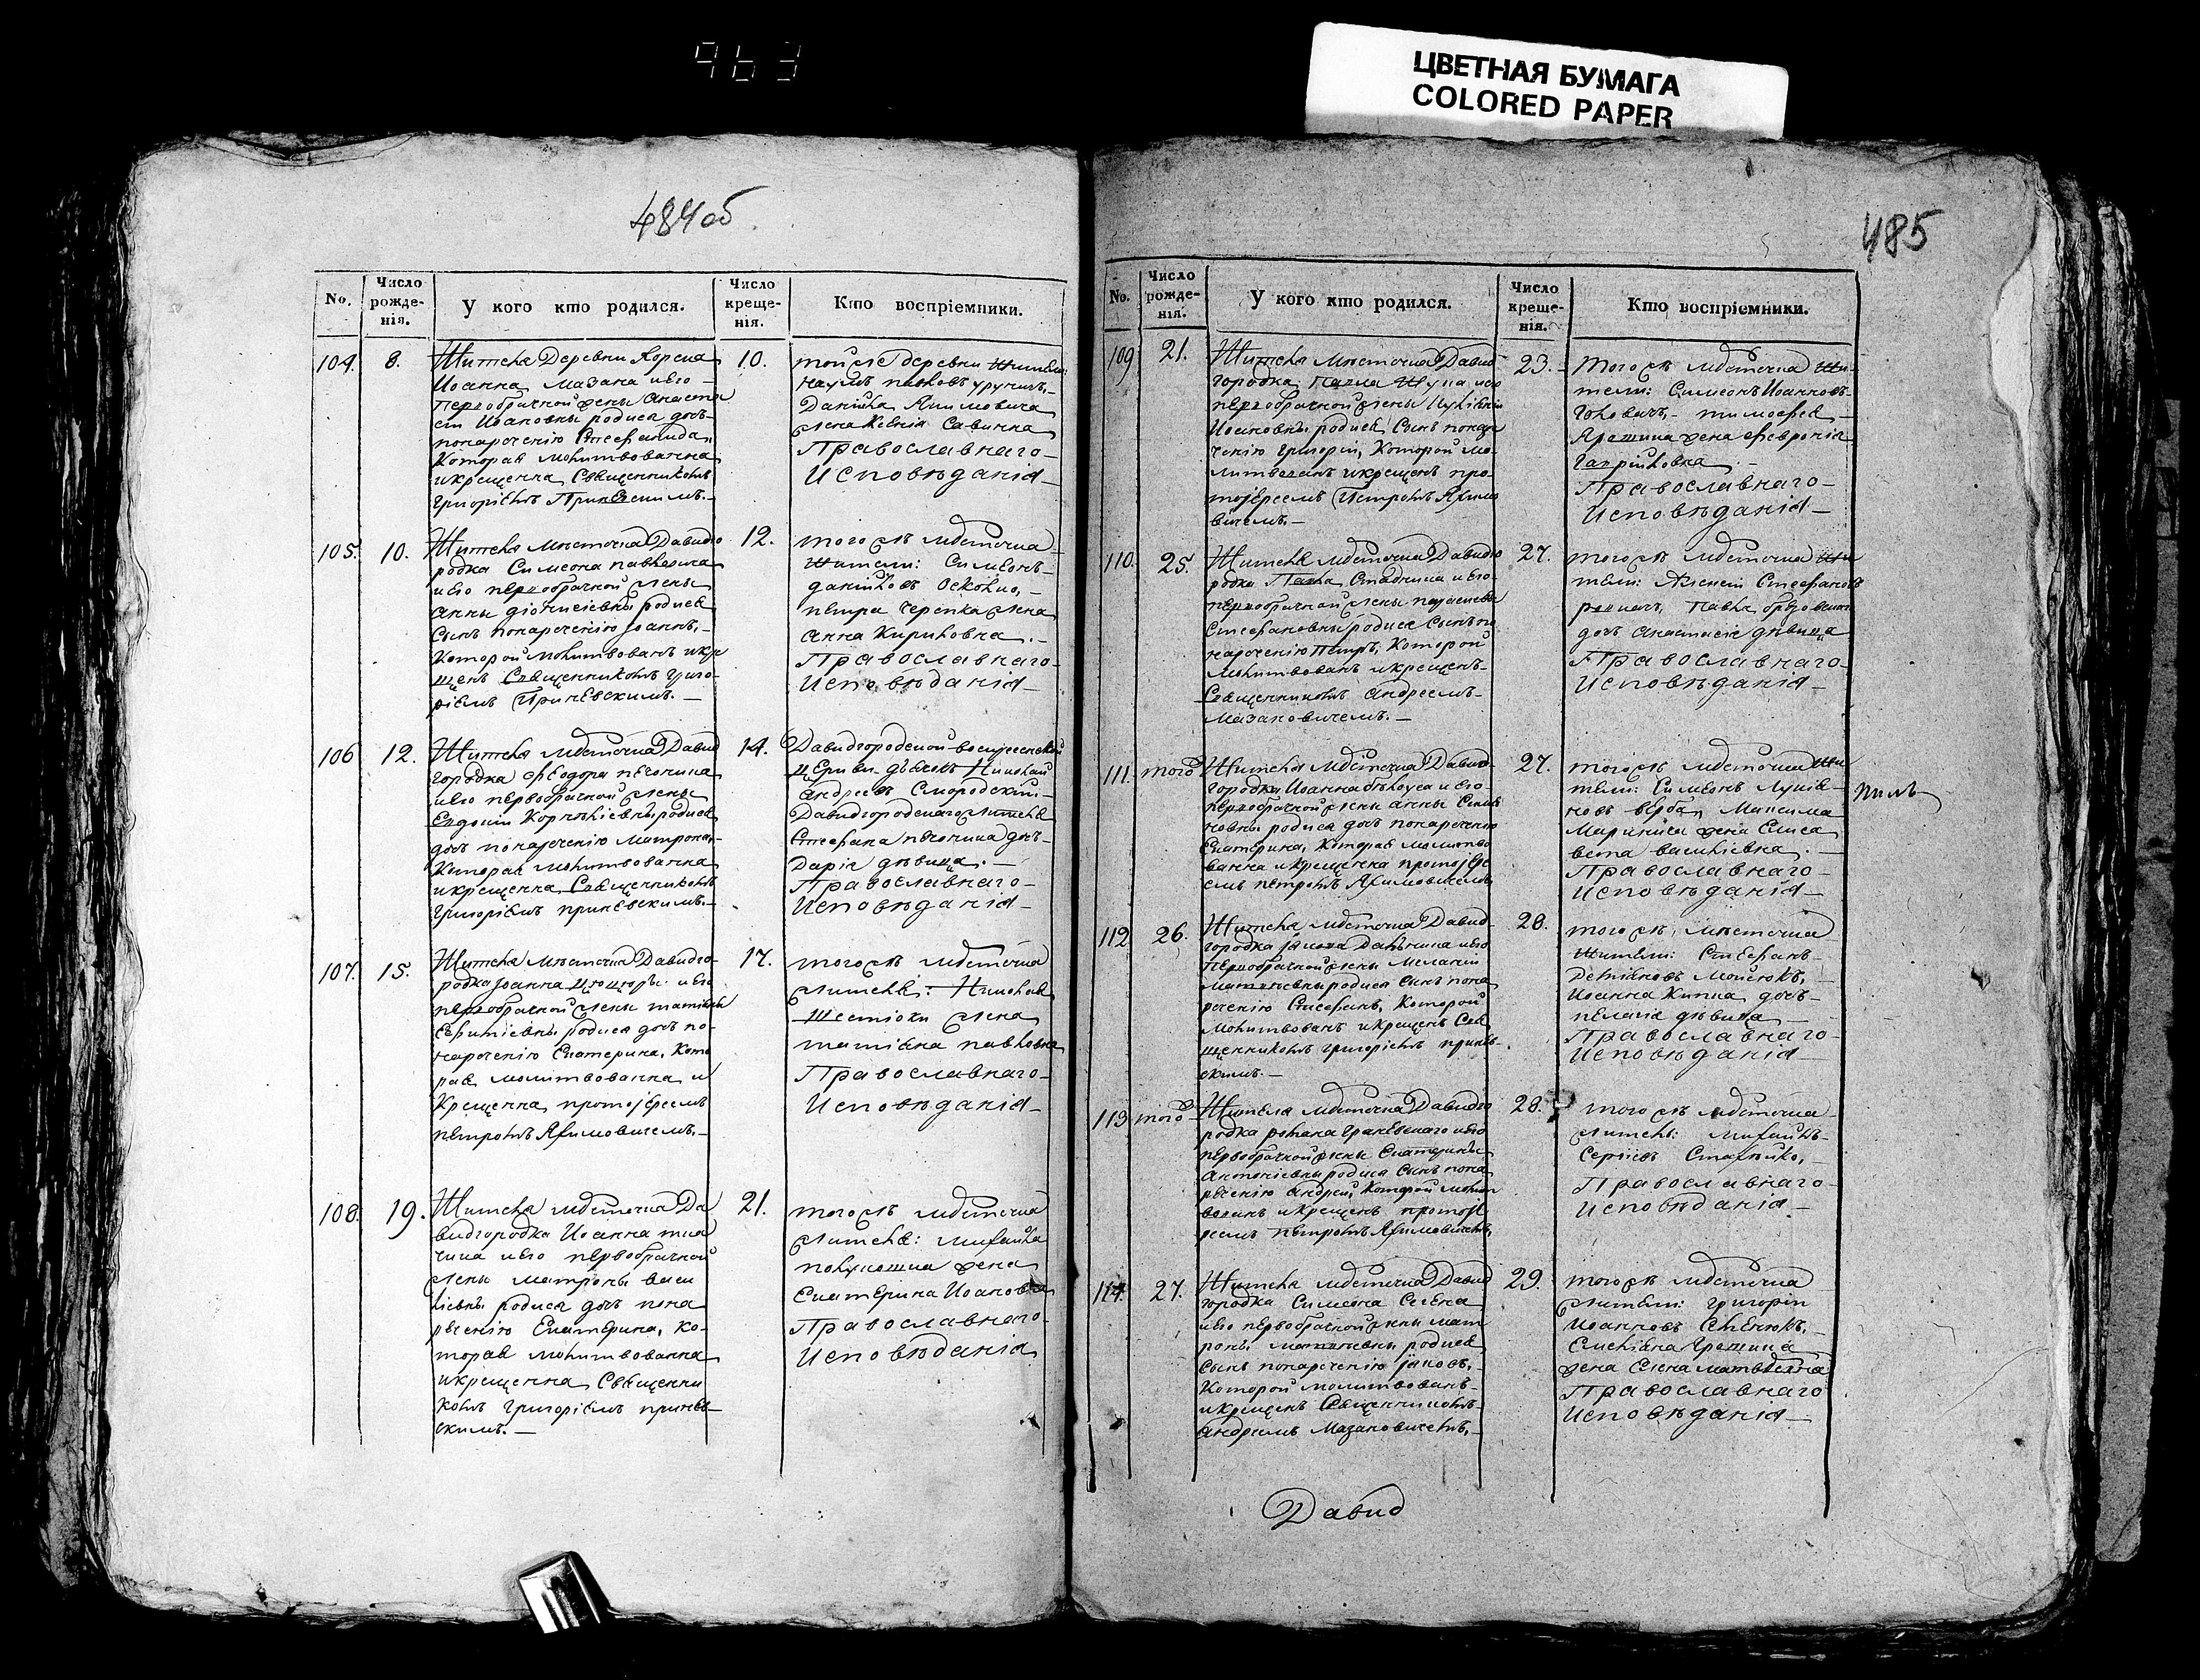 963
ЦВЕТНАЯ БУМАГА
COLORED PAPER
484об
No.
Число рожде-нія.
У кого кто родился.
Число креще-нія.
Кто воспріемники.
104.
8.
Жителя Деревни Хорска
Іоанна Мазана иего
первобрачной жены Анаста
сіи Іоановны родися дочь
понареченію Стефанида,
Которая молитвованна
икрещенна Священникомъ
Григоріемъ Приневскимъ.
10.
тойже деревни жители
Наумъ павловъ
Даніила Акимовича
жена Ксенія Саввина
Православнаго
Исповѣданія
105.
10.
Жителя мѣстечка Давидго
родка Симеона павловича
иего первобрачной жены
Анны діонисіевны родися
Сынъ понареченію Іоаннъ,
Которой молитвованъ икре
щенъ Священникомъ Григо
ріемъ Приневскимъ.
12.
тогожъ мѣстечка
жители: Симеонъ
даніиловъ
петра Черепка жена
Анна Кириловна.
Православнаго
Исповѣданія
106
12.
Жителя мѣстечка Давид
городка Феодора печоника
иего первобрачной жены
Евдокіи Корнѣліевны родися
дочь понареченію матрона,
Которая молитвованна
икрещенна Священникомъ
Григоріемъ приневскимъ.
14.
Давидгородской воскресенской
церкви дьячокъ Николай
Андреевъ Смородскій
Давидгородскаго жителя
Стефана печоника дочь
Дарія дѣвица.
Православнаго
Исповѣданія
107.
15.
Жителя мѣстечка Давидго-
родка Іоанна Цюцюры иего
первобрачной жены татіаны
родися дочь по-
нареченію Екатерина, Кото
рая молитвованна и
Крещенна протоіереемъ
петромъ Якимовичемъ.
17.
тогожъ мѣстечка
жителя: Николая
Шестюки жена
татіана павловна
Православнаго
Исповѣданія
108.
19.
Жителя мѣстечка Да
видгородка Иоанна тка
чика иего первобрачной
жены матроны васи
ліевны родися дочь пона
реченію Екатерина, ко-
торая молитвованна
икрещенна Священни
комъ Григоріемъ принев-
скимъ.
21.
тогожъ мѣстечка
жителя: михаила
жена
Екатерина Иоановна
Православнаго
Исповѣданія
485
No.
Число рожде-нія.
У кого кто родился.
Число креще-нія.
Кто воспріемники.
109
21.
Жителя мѣстечка Давид
городка Павла Жука иего
первобрачной жены Лукіліи
Иоановны родися Сынъ понаре
ченію Григорій, Которой мо-
литвованъ икрещенъ про-
тоіереемъ Петромъ Якимо
вичемъ.
23.
Тогожъ мѣстечка Жи-
тели: Симеонъ Иоанновъ
тимофея
жена февронія
Гаврииловна.
Православнаго
Исповѣданія
110.
25.
Жителя мѣстечка Давидго
родка Павла Стадника иего
первобрачной жены параскевы
Стефановны родися Сынъ по
нареченію Петръ, Которой
молитвованъ икрещенъ
Священникомъ Андреемъ
Мазановичемъ.
27.
тогожъ мѣстечка жи
тели: Алексій Стефановъ
Павла
дочь Анастасія дѣвица
Православнаго
Исповѣданія
111.
того
Жителя мѣстечка Давид-
городка Иоанна бѣлоуса иего
первобрачной жены Анны Симе
новны родися дочь понареченію
Екатерина, Которая молитво
ванна икрещенна протоіере
емъ петромъ Якимовичемъ.
27.
тогожъ мѣстечка Жи
тели: Симеонъ Лукія-
новъ верба, Максима
Мариниса жена Елиса
вета василіевна.
Православнаго
Исповѣданія
112
26.
Жителя мѣстечка Давид
городка Іакова Данчика иего
первобрачной жены Меланіи
матвѣевны родися сынъ пона
реченію Стефанъ, Которой
молитвованъ икрещенъ Свя
щенникомъ григоріемъ принев-
скимъ.
28.
тогожъ мѣстечка
Жители: Стефанъ
Моисюкъ,
Иоанна Кипка дочь
пелагія дѣвица
Православнаго
Исповѣданія
113
того
Жителя мѣстечка Давидго
родка романа Граневскаго иего
первобрачной жены Екатерины
Антоніевны родися Сынъ пона
реченію Андрей, Которой молит
вованъ икрещенъ протоі
реемъ петромъ Якимовичемъ.
28.
тогожъ мѣстечка
жители: михаилъ
Сергіевъ
Православнаго
Исповѣданія
114.
27.
Жителя мѣстечка Давид
городка Симеона
иего первобрачной жены мат
роны матвѣевны родися
Сынъ понареченію Іаковъ,
Которой молитвованъ
икрещенъ Священникомъ
Андреемъ Мазановичемъ.
29.
тогожъ мѣстечка
жители: Григорій
Иоанновъ
жена Елена матвѣевна
Православнаго
Исповѣданія
Давид